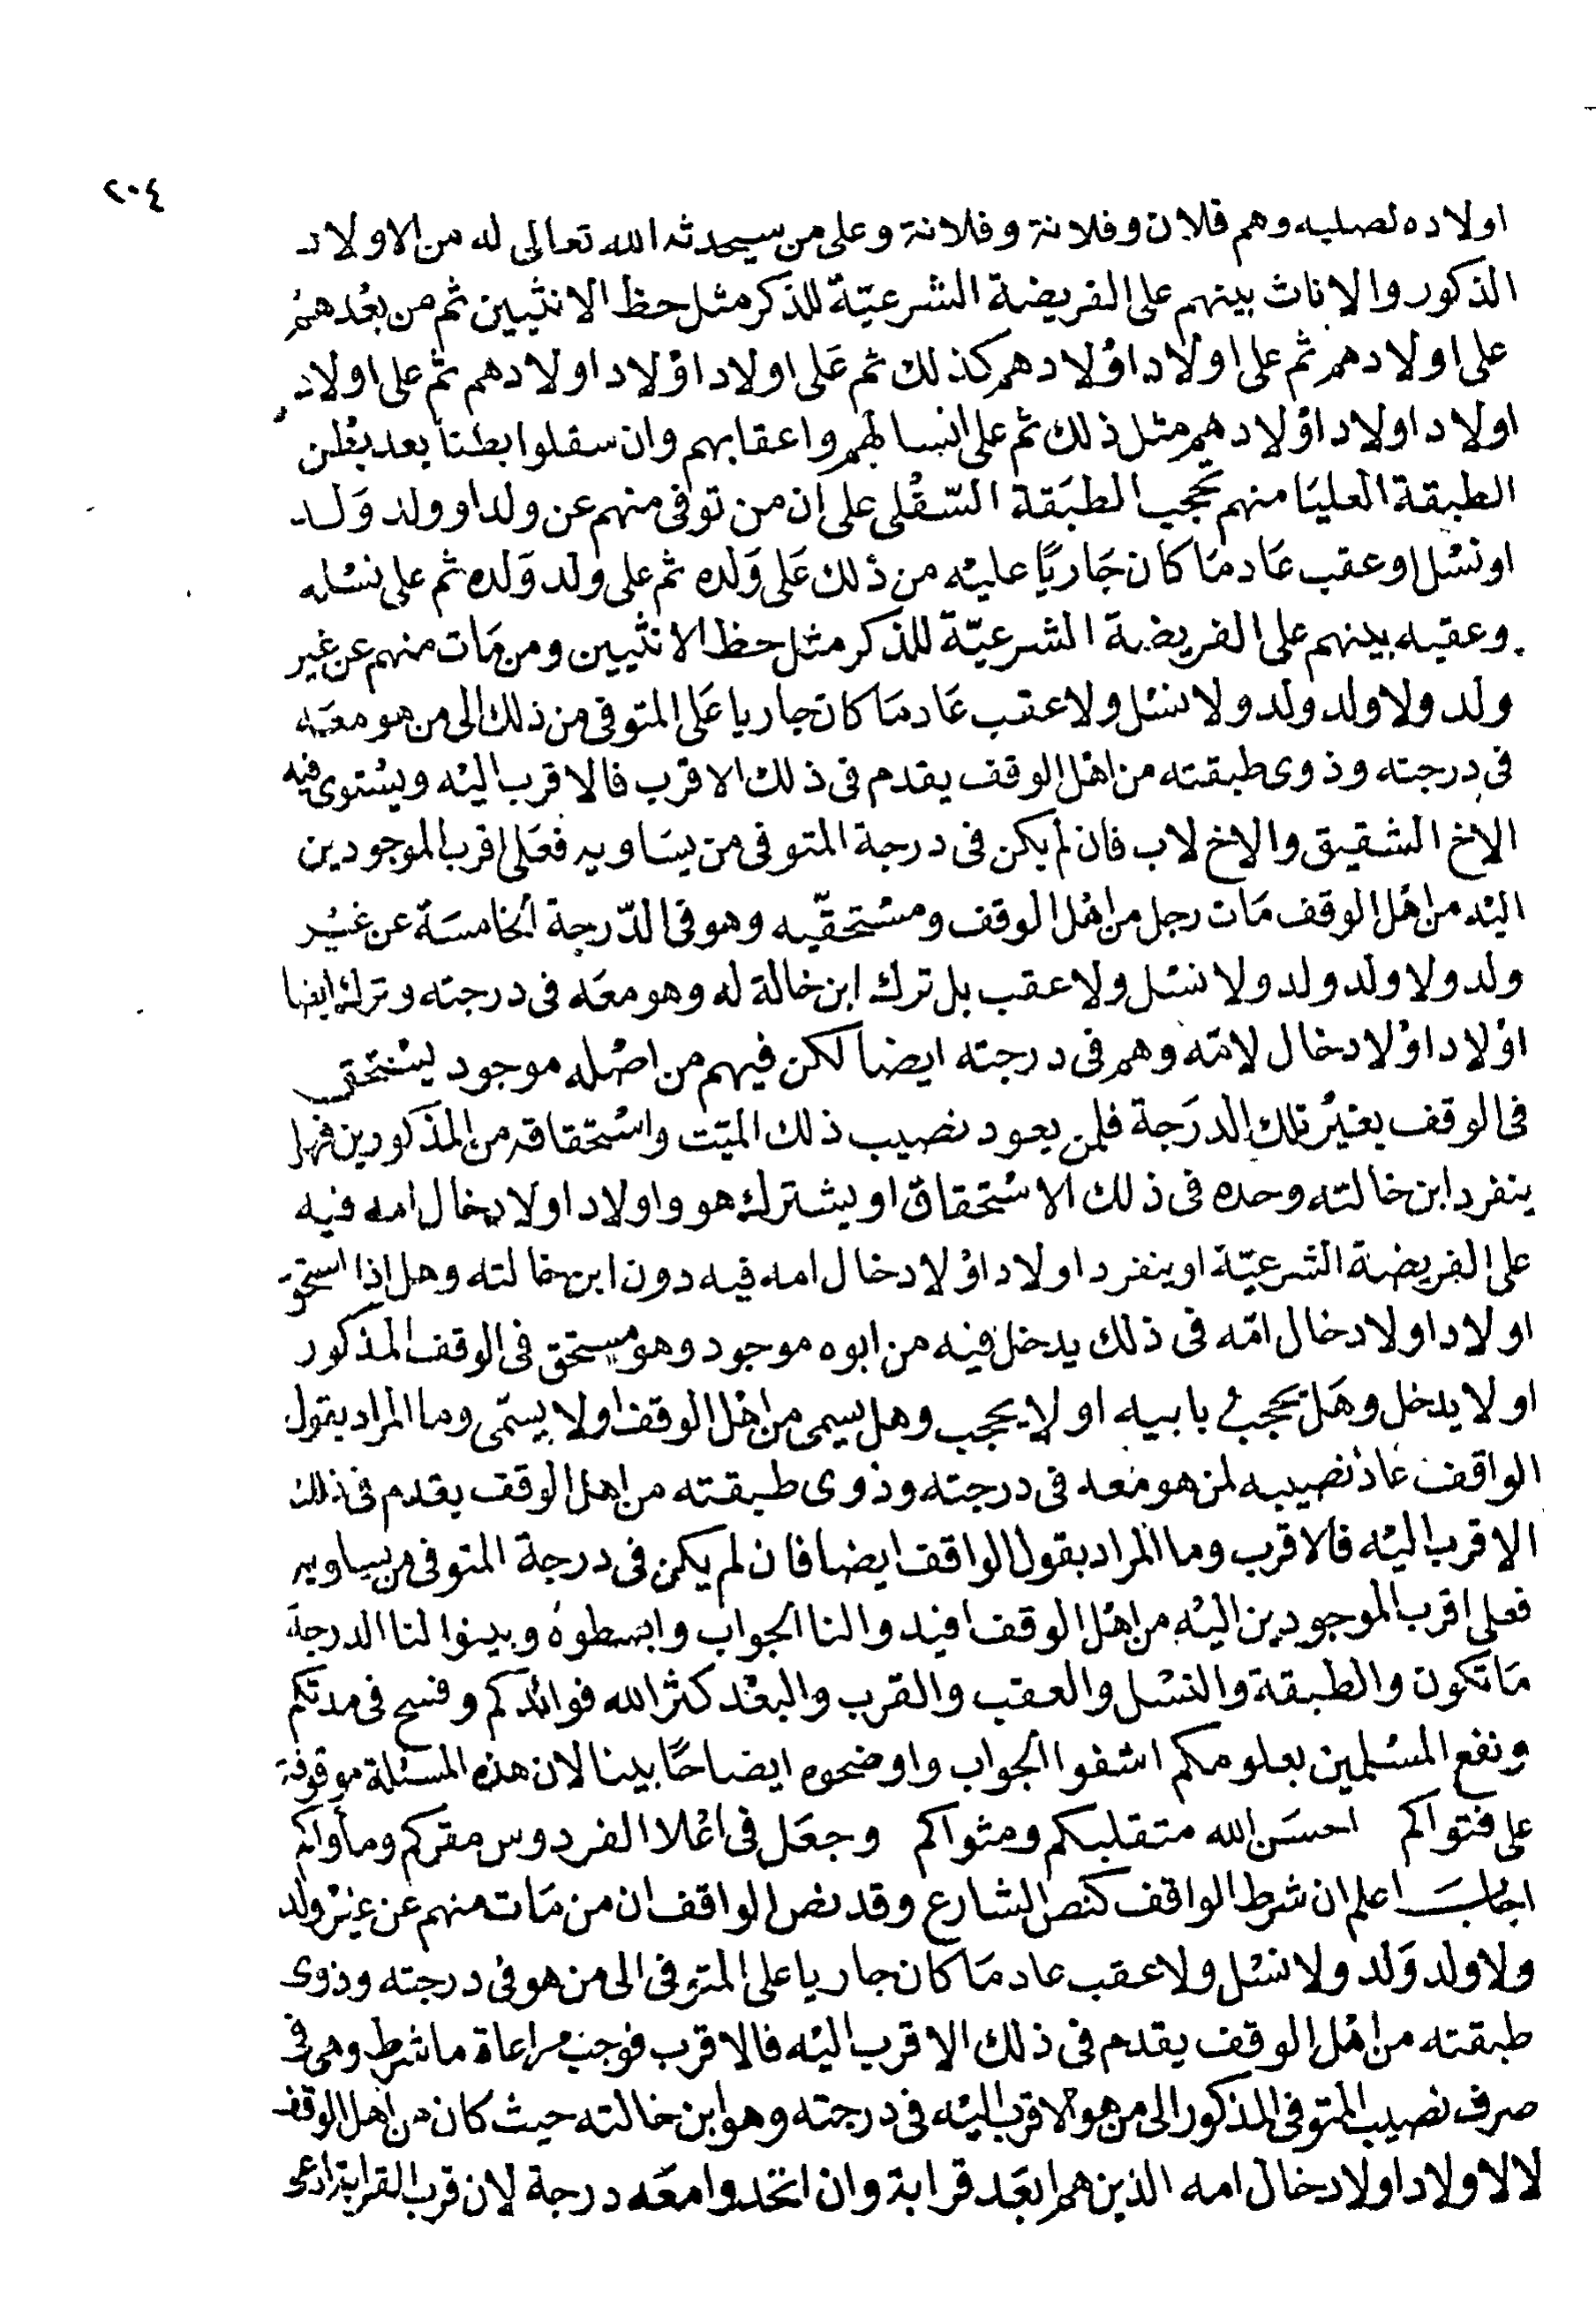 ٢٠٤
اولاده لصلبه وهم فلان وفلانة وفلانة وعلى من سيحدثه الله تعالى له من الاولاد
الذكور والاناث بينهم على الفريضة الشرعيّة للذكر مثل حظ الانثيين ثم من بعدهم
على اولادهم ثم على اولاد اولادهم كذلك ثم على اولاد اولاد اولادهم ثم على اولاد
اولاد اولاد اولادهم مثل ذلك ثم على انسالهم واعقابهم وان سفلوا بطنا بعد بطن
الطبقة العليا منهم تحجب الطبقة السّفلى على ان من توفى منهم عن ولد او ولد ولد
او نسل او عقب عاد ما كان جاريًا عليه من ذلك على ولده ثم على ولد ولده ثم على نسله
وعقبه بينهم على الفريضة الشرعيّة للذكر مثل حظ الانثيين ومن مات منهم عن غير
ولد ولا ولد ولد ولا نسل ولا عقب عاد ما كان جاريا على المتوفى من ذلك الى من هو معه
فى درجته وذوى طبقته من اهل الوقف يقدم فى ذلك الاقرب فالاقرب اليه ويستوى فيه
الاخ الشقيق والاخ لاب فان لم يكن فى درجة المتوفى من يساويه فعلى اقرب الموجودين
اليه من اهل الوقف مات رجل من اهل الوقف ومستحقّيه وهو فى الدّرجة الخامسة عن غير
ولد ولا ولد ولد ولا نسل ولا عقب بل ترك ابن خالة له وهو معه فى درجته وترك ايضا
اولاد اولاد خال لامّه وهم فى درجته ايضا لكن فيهم من اصله موجود ليستحق
فى الوقف بغير تلك الدرجة فلمن يعود نصيب ذلك الميّت واستحقاقه من المذكورين فهل
ينفرد ابن خالته وحده فى ذلك الاستحقاق او يشترك هو واولاد اولاد خال امه فيه
على الفريضة الشرعيّة او ينفرد اولاد اولاد خال امه فيه دون ابن خالته وهل اذا استحق
اولاد اولاد خال امّه فى ذلك يدخل فيه من ابوه موجود وهو مستحق فى الوقف المذكور
او لا يدخل وهل يحجب بابيه او لا يحجب وهل يسمى من اهل الوقف او لا يسمّى وما المراد بقول
الواقف عاد نصيبه لمن هو معه فى درجته وذوى طبقته من اهل الوقف يقدم فى ذلك
الاقرب اليه فالاقرب وما المراد بقول الواقف ايضا فان لم يكن فى درجة المتوفى من يساويه
فعلى اقرب الموجودين اليه من اهل الوقف افيدوا لنا الجواب وابسطوه وبينوا لنا الدرجة
ما تكون والطبقة والنسل والعقب والقرب والبعد كثر الله فوائدكم وفسح فى مدتكم
ونفع المسلمين بعلومكم اشفوا الجواب واوضحوه ايضاحًا بينا لان هذه المسئلة موقوفة
على فتواكم احسن الله متقلبكم ومثواكم وجعل فى اعلا الفردوس مقركم ومأواكم
اجاب اعلم ان شرط الواقف كنص الشارع وقد نص الواقف ان من مات منهم عن غير ولد
ولا ولد ولد ولا نسل ولا عقب عاد ما كان جاريا على المتوفى الى من هو فى درجته وذوى
طبقته من اهل الوقف يقدم فى ذلك الاقرب اليه فالاقرب فوجب مراعاة ما شرط وهى فى
صرف نصيب المتوفى المذكور الى من هو الاقرب اليه فى درجته وهو ابن خالته حيث كان من اهل الوقف
لا لاولاد اولاد خال امه الذين هم ابعد قرابة وان اتحدوا معه درجة لان قرب القرابة ادعى